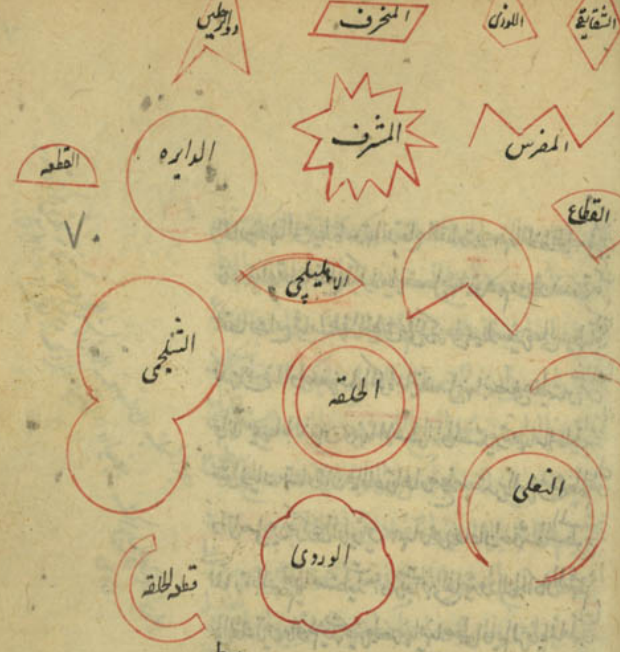 الشقايقى
اللوزى
المنحرف
المضرس
المشرف
الدايره
القطعه
القطاع
الاهليلجى
٧٠
الشلجمى
الحلقه
النعلى
الوردى
قطعه الحلقه